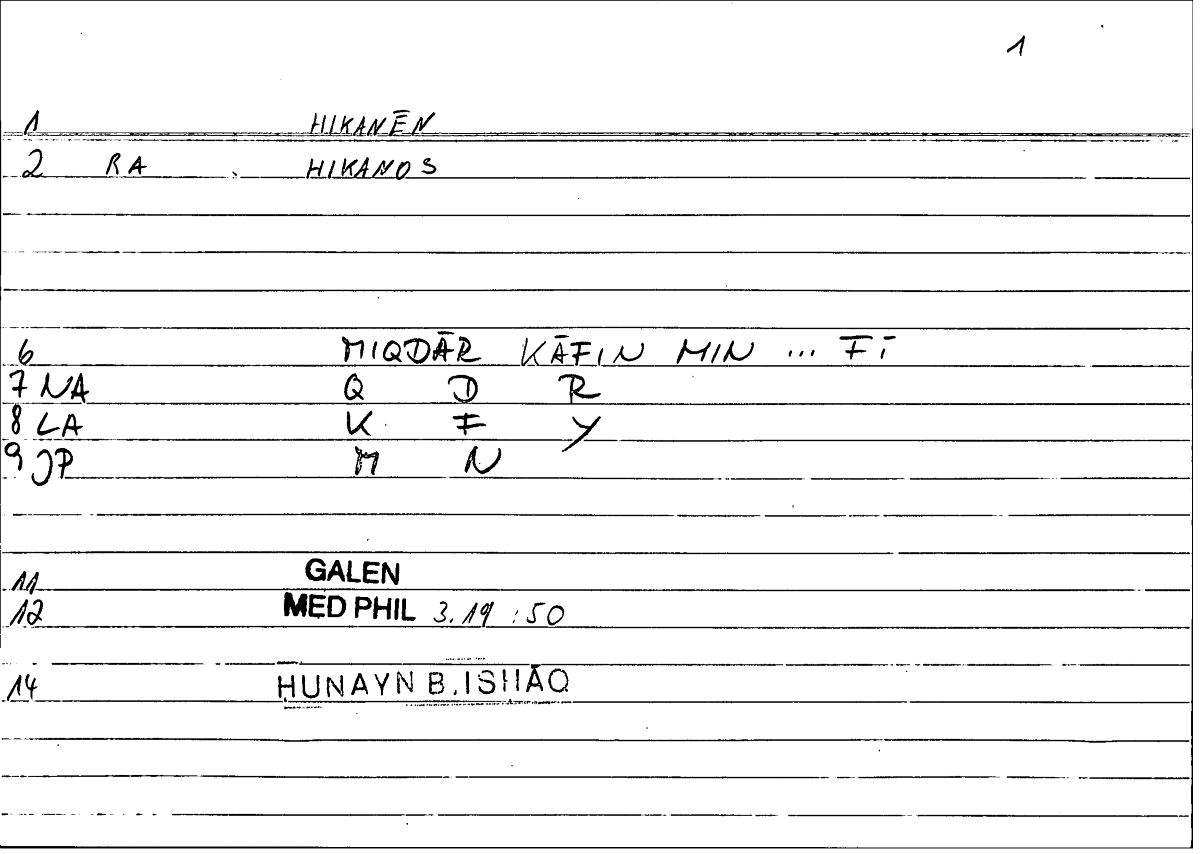 1
1 HIKANĒN
2 RA HIKANOS
6 MIQDĀR KĀFIN MIN ... FĪ
7 NA Q D R
8 LA K F Y
9 JP M N
11 GALEN
12 MED PHIL 3.19 :50
14 ḤUNAYN B. ISḤĀQ